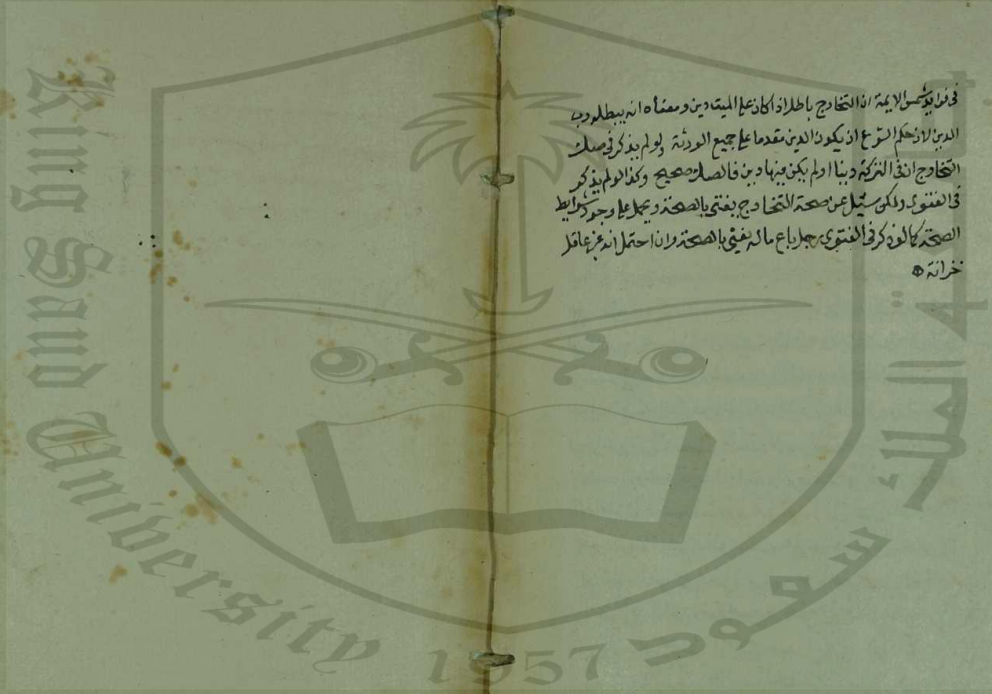 في فوائد شمس الايمة ان التخارج باطل اذا كان على الميت دين ومعناه انه يبطله رب
الدين لان حكم الشرع ان يكون الدين مقدما على جميع الورثة ولو لم يذكر في صك
التخارج ان في التركة دينا اولم يكن فيها دين فالصك صحيح وكذا لو لم يذكر
في الفتوى ولكن سئيل عن صحة التخارج يفتي بالصحة ويحمل على وجود شرايط
الصحة كما لو ذكر في الفتوى رجل باع ماله يفتي بالصحة وان احتمل انه غير عاقل
خزانة
King Saud University
1957
جامعة الملك سعود